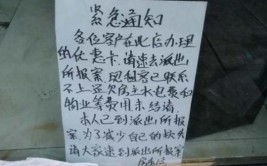 紧急通知
各位客户在此店办理
的优惠卡、请速去派出
所报案，现刻客已联系
不上还欠房主水电费和
物业等费用未结清
本人已到派出所报
案，为了减少自己的损失
请大家速到派出所报案